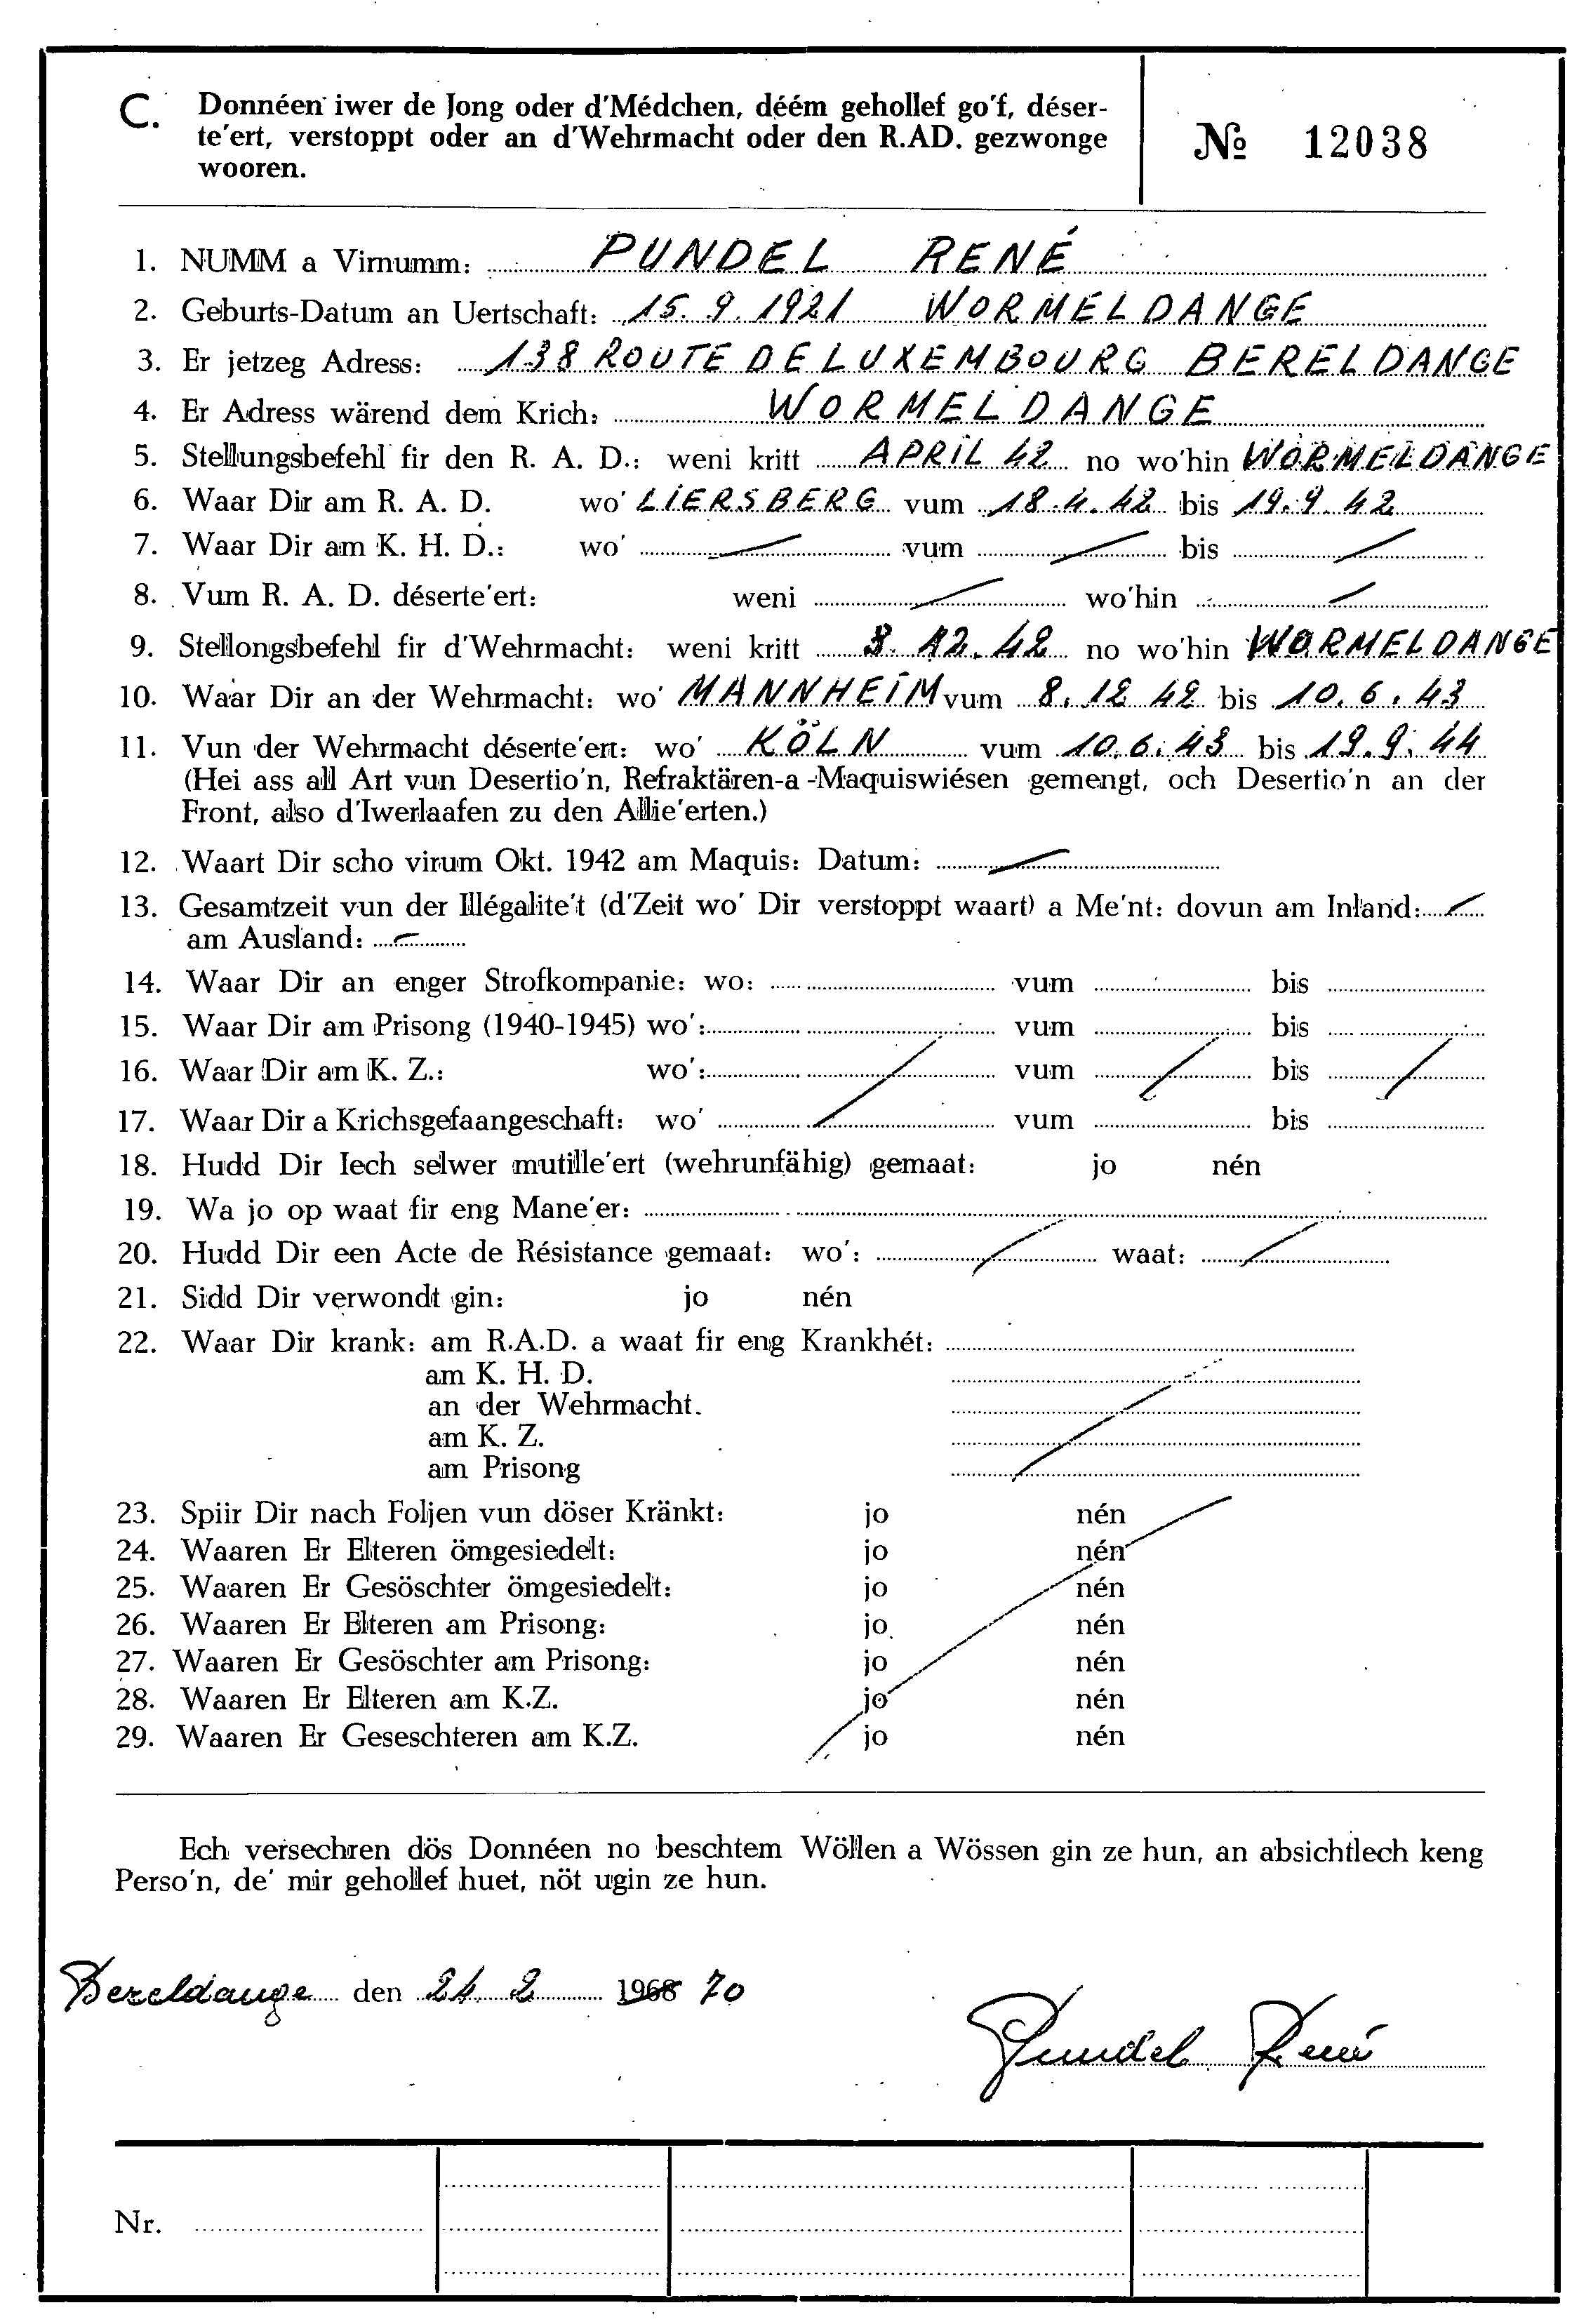 C. Donnéen iwer de Jong oder d'Médchen, déém gehollef go'f, déser-
te'ert, verstoppt oder an d'Wehrmacht oder den R.AD. gezwonge
wooren.
№ 12038
1. NUMM a Virnumm: PUNDEL RENÉ
2. Geburts-Datum an Uertschaft: 15. 9. 1921 WORMELDANGE
3. Er jetzeg Adress: 138 ROUTE DE LUXEMBOURG BERELDANGE
4. Er Adress wärend dem Krich: WORMELDANGE
5. Stellungsbefehl fir den R. A. D.: weni kritt APRIL 42 no wo'hin WORMELDANGE
6. Waar Dir am R. A. D. wo' LIERSBERG vum 18.4.42 bis 19.9.42
7. Waar Dir am K. H. D.: wo' / vum / bis /
8. Vum R. A. D. déserte'ert: weni / wo'hin /
9. Stellongsbefehl fir d'Wehrmacht: weni kritt 3. 12. 42 no wo'hin WORMELDANGE
10. Waar Dir an der Wehrmacht: wo' MANNHEIM vum 8. 12 42 bis 10. 6. 43
11. Vun der Wehrmacht déserte'ert: wo' KÖLN vum 10.6.43 bis 19.9.44
(Hei ass all Art vun Desertio'n, Refraktären-a -Maquiswiésen gemengt, och Desertio'n an der
Front, also d'Iwerlaafen zu den Allie'erten.)
12. Waart Dir scho virum Okt. 1942 am Maquis: Datum: /
13. Gesamtzeit vun der Illégalite't (d'Zeit wo' Dir verstoppt waart) a Me'nt: dovun am Inland: /
am Ausland: /
14. Waar Dir an enger Strofkompanie: wo: vum bis
15. Waar Dir am Prisong (1940-1945) wo': vum bis
16. Waar Dir am K. Z.: wo': vum bis
17. Waar Dir a Krichsgefaangeschaft: wo' vum bis
18. Hudd Dir Iech selwer mutille'ert (wehrunfähig) gemaat: jo nén
19. Wa jo op waat fir eng Mane'er:
20. Hudd Dir een Acte de Résistance gemaat: wo': waat:
21. Sidd Dir verwondt gin: jo nén
22. Waar Dir krank: am R.A.D. a waat fir eng Krankhét:
am K. H. D.
an der Wehrmacht.
am K. Z.
am Prisong
23. Spiir Dir nach Foljen vun döser Kränkt: jo nén
24. Waaren Er Elteren ömgesiedelt: jo nén
25. Waaren Er Gesöschter ömgesiedelt: jo nén
26. Waaren Er Elteren am Prisong: jo nén
27. Waaren Er Gesöschter am Prisong: jo nén
28. Waaren Er Elteren am K.Z. jo nén
29. Waaren Er Geseschteren am K.Z. jo nén
Ech versechren dös Donnéen no beschtem Wöllen a Wössen gin ze hun, an absichtlech keng
Perso'n, de' mir gehollef huet, nöt ugin ze hun.
Bereldange den 24. 2 1968 70
Pundel René
Nr.